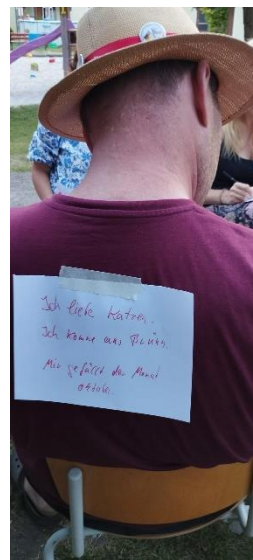 Ich liebe Katzen.
Ich komme aus Brünn.
Mir gefällt der Monat
Oktober.